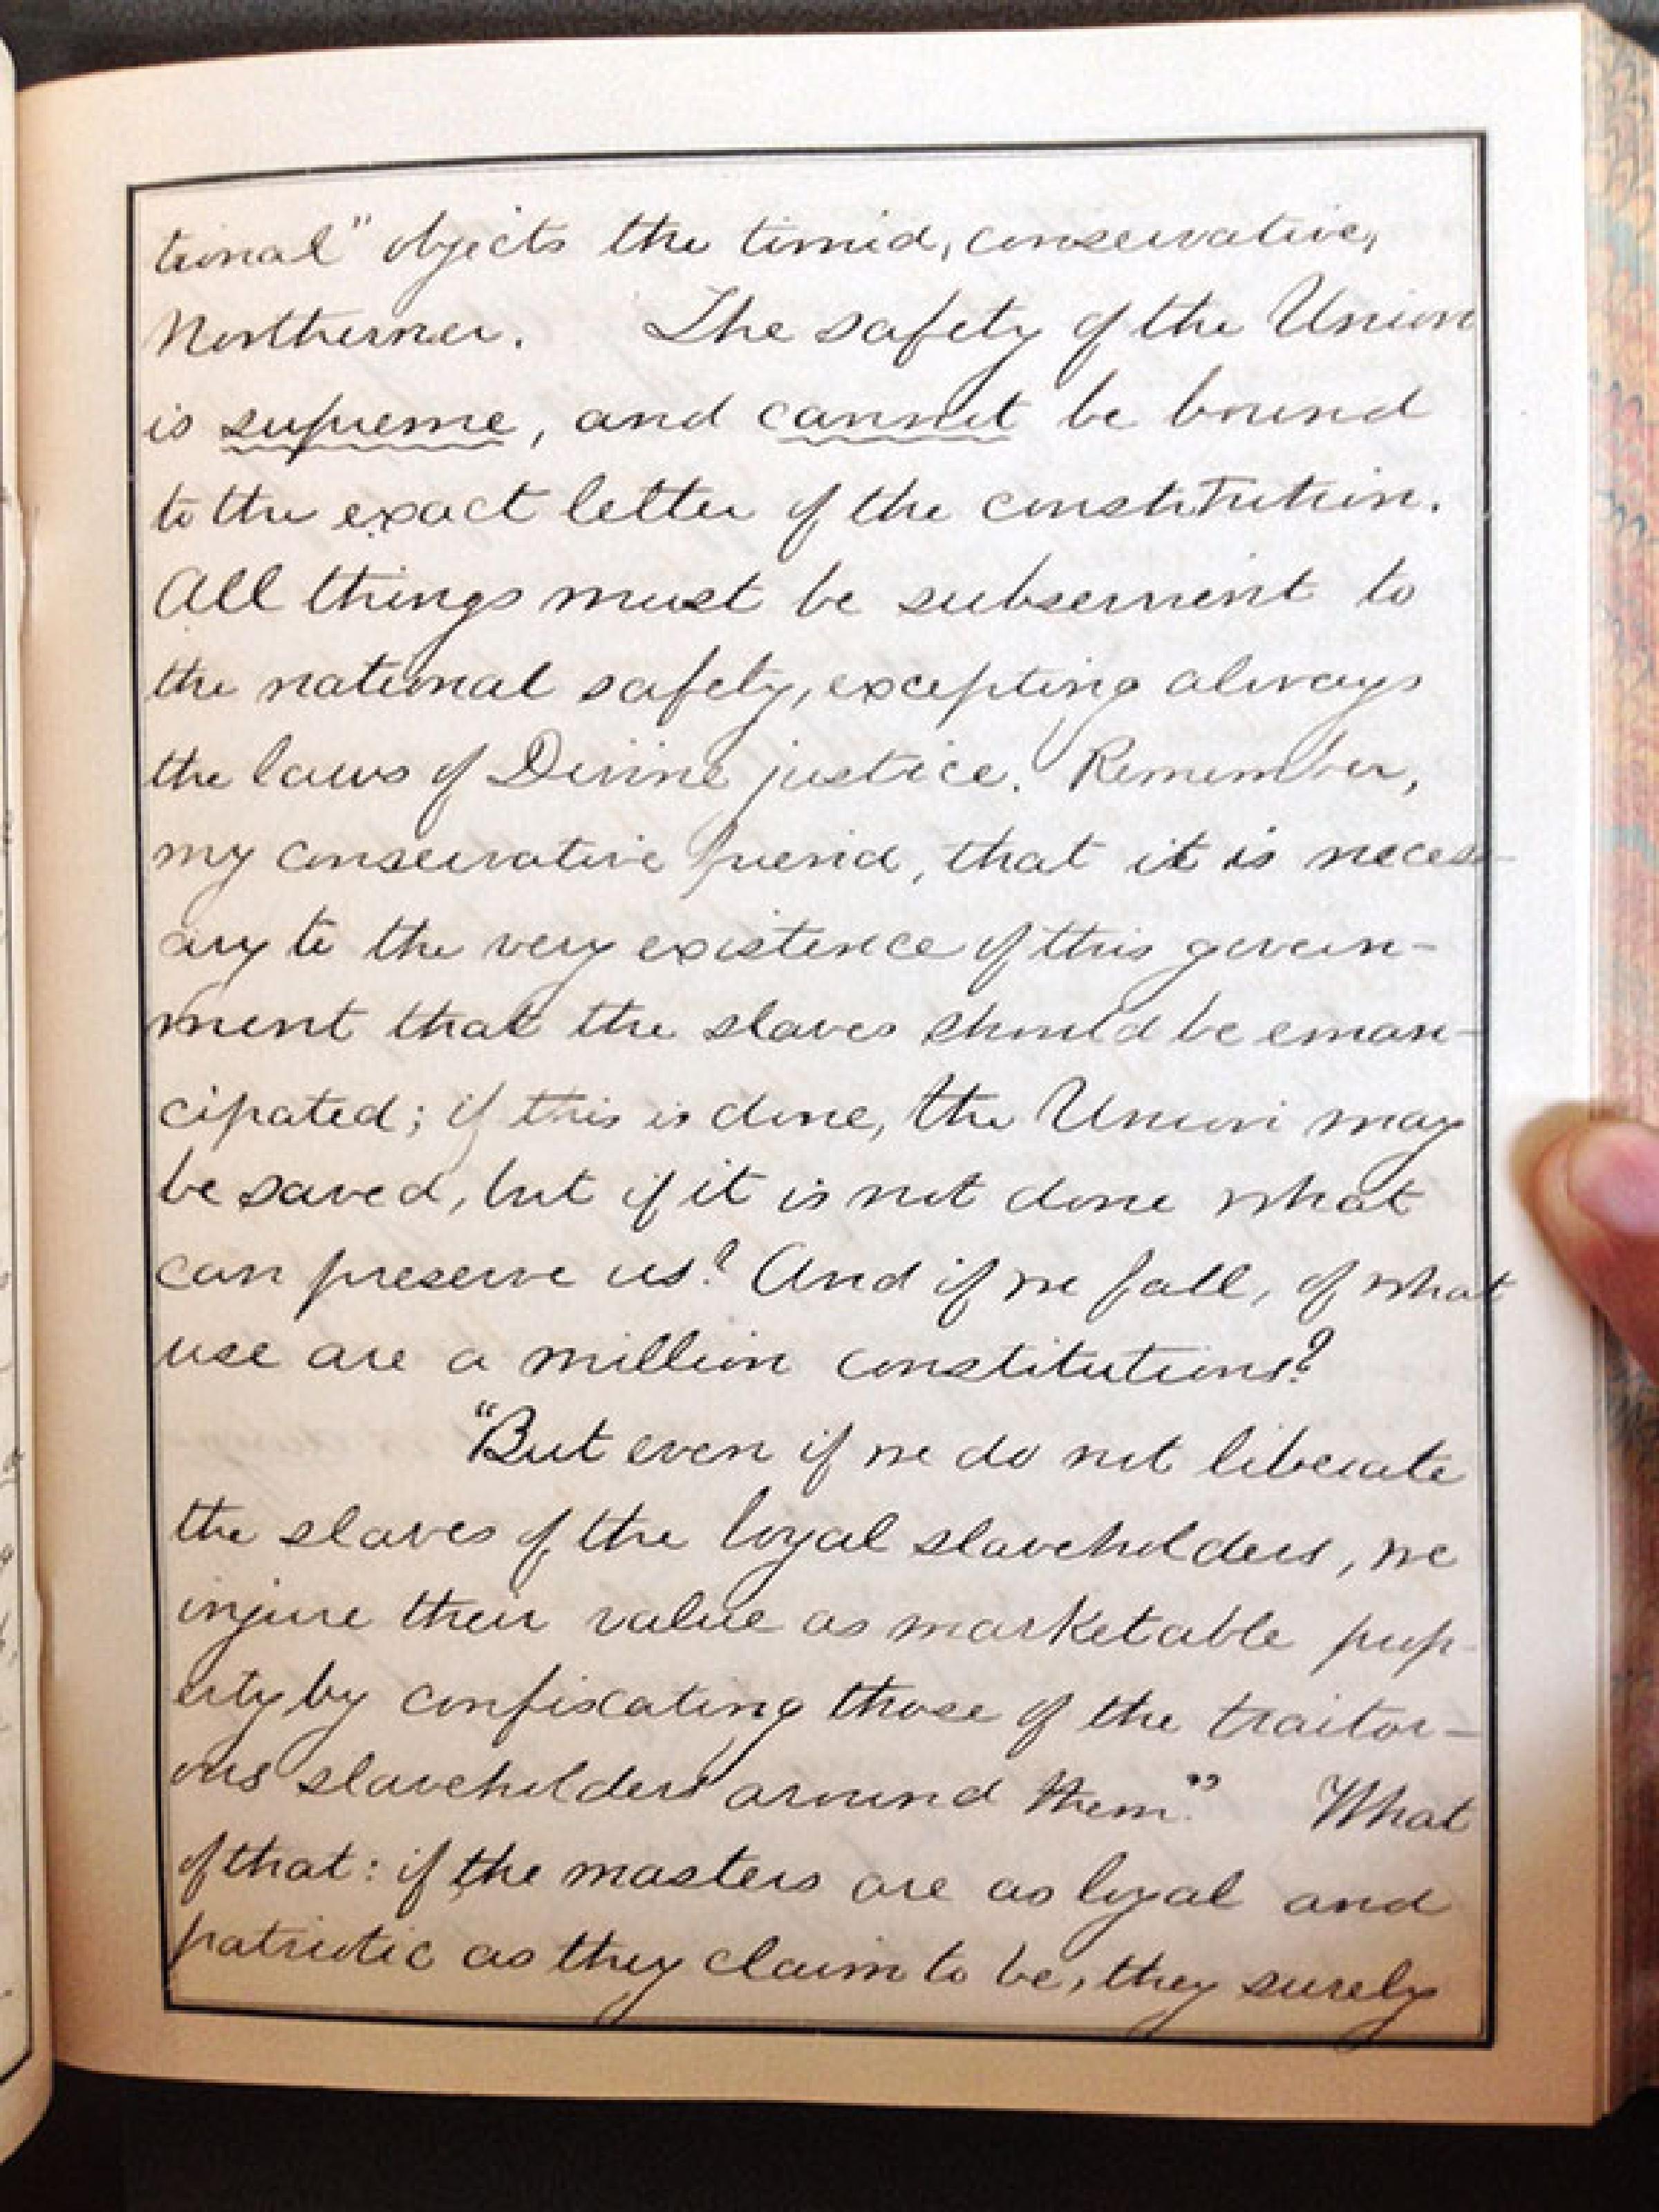 tional" objects the timid, conservative,
Northerner. The safety of the Union
is supreme, and cannot be bound
to the exact letter of the constitution.
All things must be subservient to
the national safety, excepting always
the laws of Divine justice. Remember,
my conservative friend, that it is necess-
ary to the very existence of this govern-
ment that the slaves should be eman-
cipated; if this is done, the Union may
be saved, but if it is not done what
can preserve us? And if we fall, of what
use are a million constitutions?
"But even if we do not liberate
the slaves of the loyal slaveholders, we
injure their value as marketable prop-
erty by confiscating those of the traitor-
ous slaveholders around them." What
of that: if the masters are as loyal and
patriotic as they claim to be, they surely